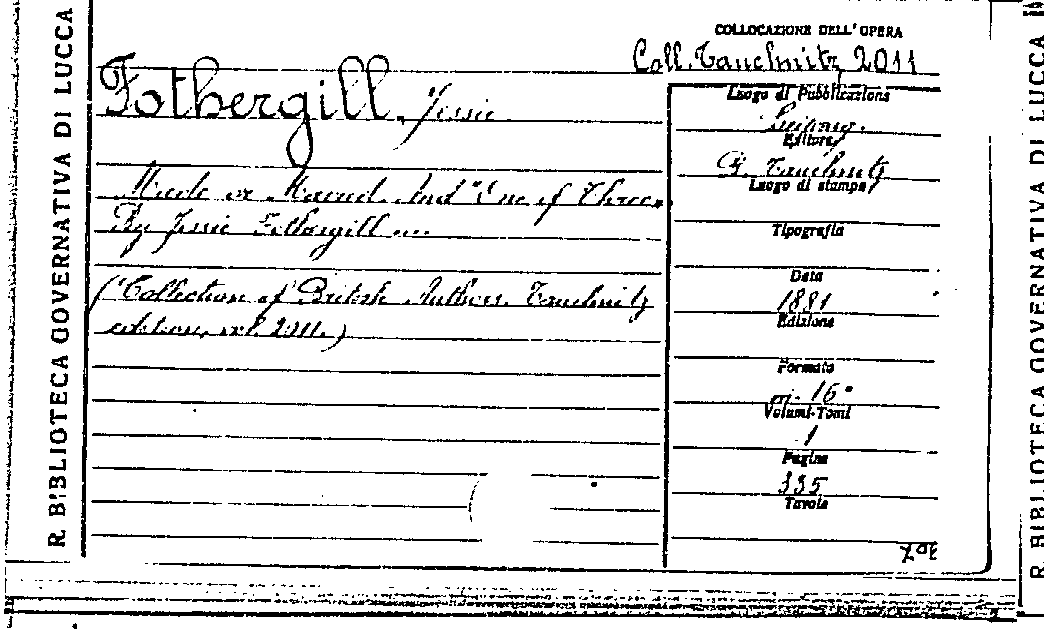 R. BIBLIOTECA GOVERNATIVA DI LUCCA
COLLOCAZIONE DELL'OPERA
Coll. Tauchnitz 2011
Fothergill, Jessie
Made or Marred. And "One of Three.
By Jessie Fothergill ....
("Collection of British Authors. Tauchnitz
edition, vol. 2011.)
Luogo di Pubblicazione
Leipzig.
Editore
B. Tauchnitz
Luogo di stampa
Tipografia
Data
1881
Edizione
Formato
in- 16°
Volumi-Tomi
1
Pagine
335
Tavole
R BIBLIOTECA GOVERNATIVA DI LUCCA